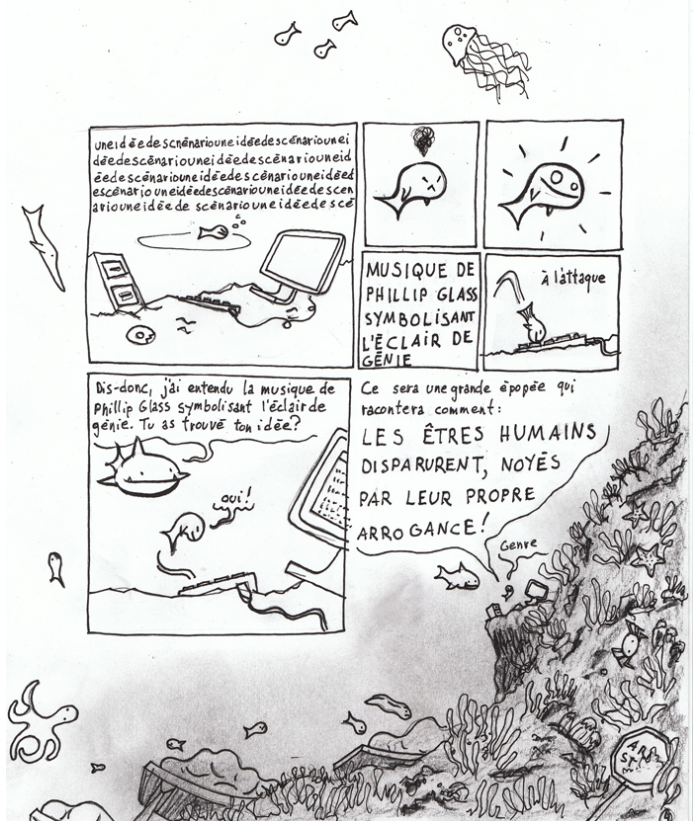 uneidéedescnénariouneidéedescénariounei
déedescénariouneidéedescénariouneid
éedescénariouneidéedescénariouneidéed
escénariouneidéedescénariouneidéedescen
ariouneidée de scénariouneidéedescé
MUSIQUE DE
PHILLIP GLASS
SYMBOLISANT
L'ÉCLAIR DE
GÉNIE
à l'attaque
Dis-donc, j'ai entendu la musique de
Phillip Glass symbolisant l'éclair de
génie. Tu as trouvé ton idée?
oui!
Ce sera une grande épopée qui
racontera comment:
LES ÊTRES HUMAINS
DISPARURENT, NOYÉS
PAR LEUR PROPRE
ARROGANCE!
Genre